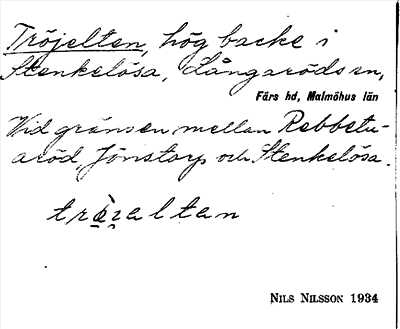 Tröjelten, hög backe i
Stenkelösa, Långaröds sn,
Färs hd, Malmöhus län
Vid gränsen mellan Rebbetu-
aröd, Jönstorp och Stenkelösa.
NILS NILSSON 1934